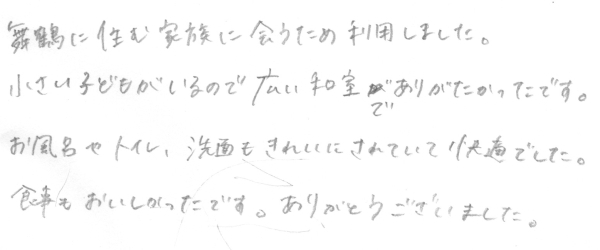 舞鶴に住む家族に会うため利用しました。
小さい子どもがいるので広い和室でありがたかったです。
お風呂やトイレ、洗面もきれいにされていて快適でした。
食事もおいしかったです。ありがとうございました。